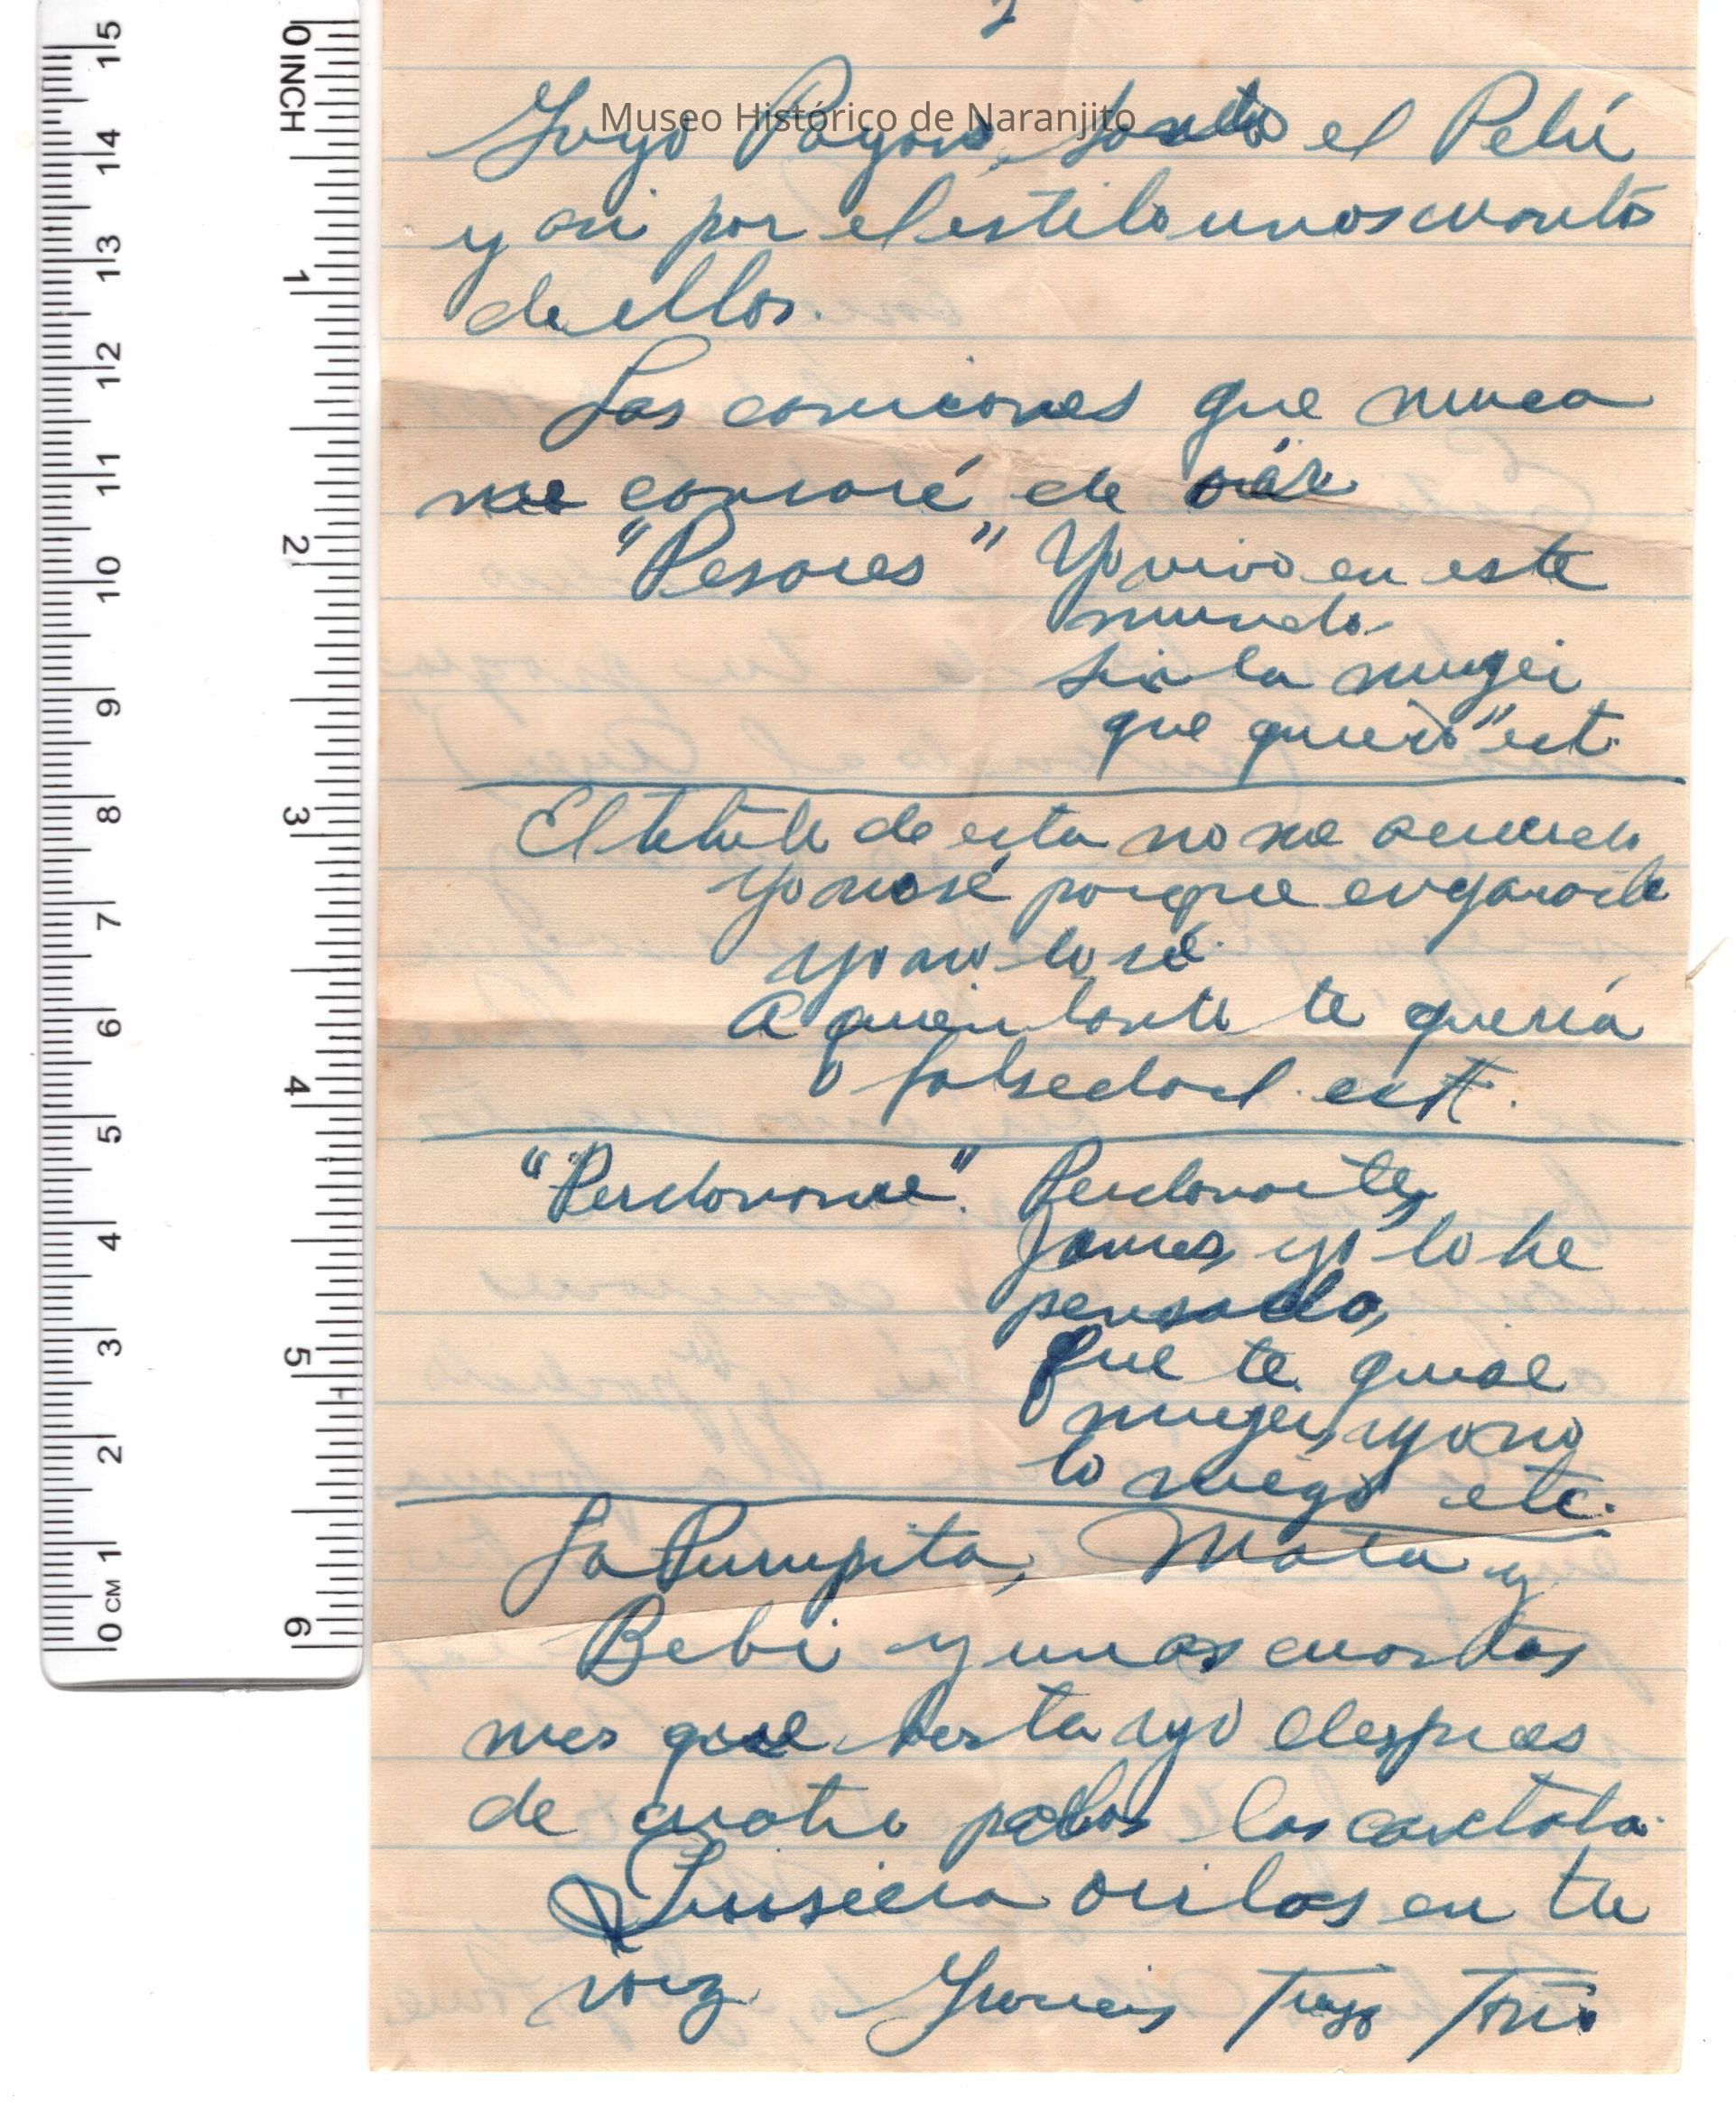 2
Museo Histórico de Naranjito
Goyo Payano, Santos el Pelú
y asi por el estilo unos cuantos
de ellos.
Las canciones que nunca
me cansaré de oír
"Pesares" Yo vivo en este
mundo
sin la muger
que quiero" ect.
El titulo de esta no me acuerdo
Yo no sé porque engañaste
yo no lo sé
a quien tanto te quería
o falsedad. ect.
"Perdoname". Perdonarte,
James, yo lo he
pensado,
Que te quise
muger, yo no
lo niego etc.
La Purupita, Mata y
Bebi y unas cuantas
mas que hasta yo despues
de cuatro palos las cantaba.
Quisiera oirlas en tu
voz. Gracias Tuyo Toño
0 INCH 1 2 3 4 5 6
0 CM 1 2 3 4 5 6 7 8 9 10 11 12 13 14 15